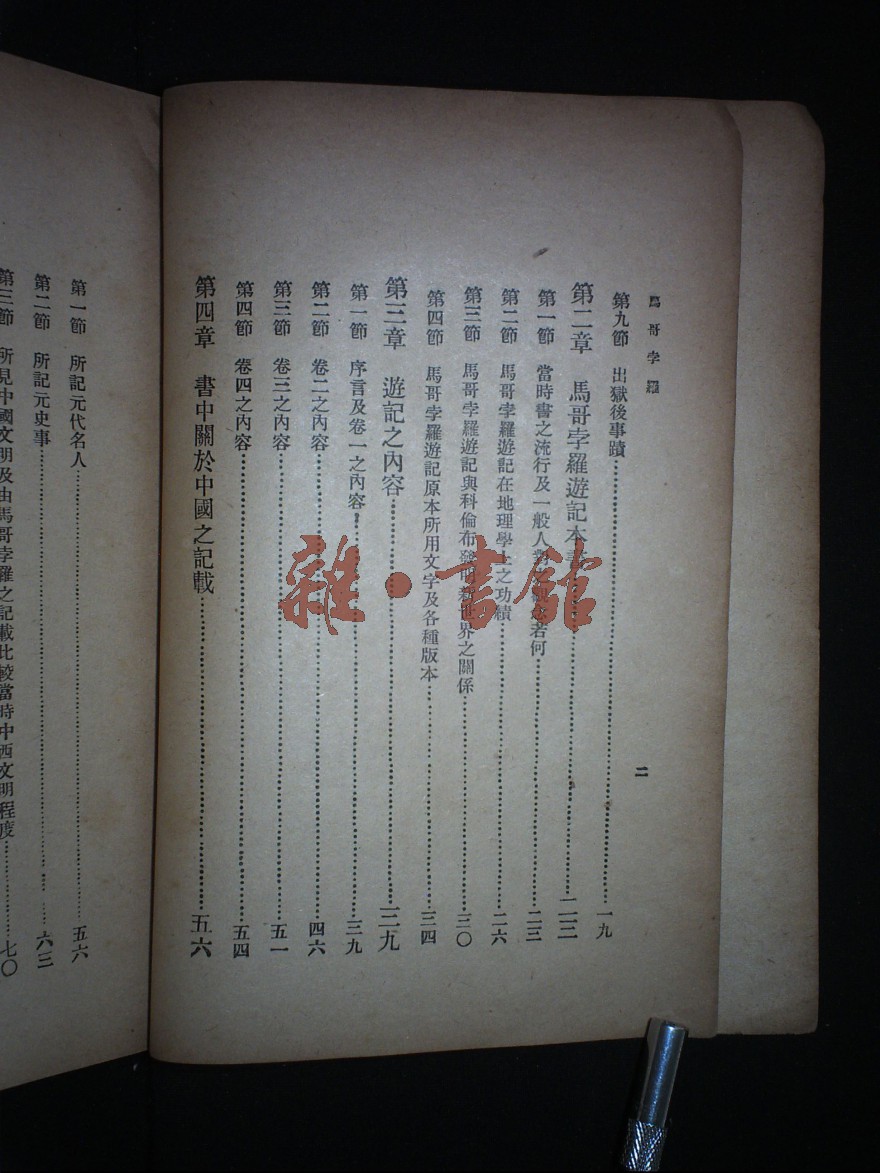 馬哥孛羅
二
第九節 出獄後事蹟⋯⋯一九
第二章 馬哥孛羅遊記本書⋯⋯二三
第一節 當時書之流行及一般人對之觀念若何⋯⋯二三
第二節 馬哥孛羅遊記在地理學上之功績⋯⋯二六
第三節 馬哥孛羅遊記與科倫布發明新世界之關係⋯⋯三〇
第四節 馬哥孛羅遊記原本所用文字及各種版本⋯⋯三四
第三章 遊記之內容⋯⋯三九
第一節 序言及卷一之內容⋯⋯三九
第二節 卷二之內容⋯⋯四六
第三節 卷三之內容⋯⋯五一
第四節 卷四之內容⋯⋯五四
第四章 書中關於中國之記載⋯⋯五六
第一節 所記元代名人⋯⋯五六
第二節 所記元史事⋯⋯六三
第三節 所見中國文明及由馬哥孛羅之記載比較當時中西文明程度⋯⋯七〇
雜·書館